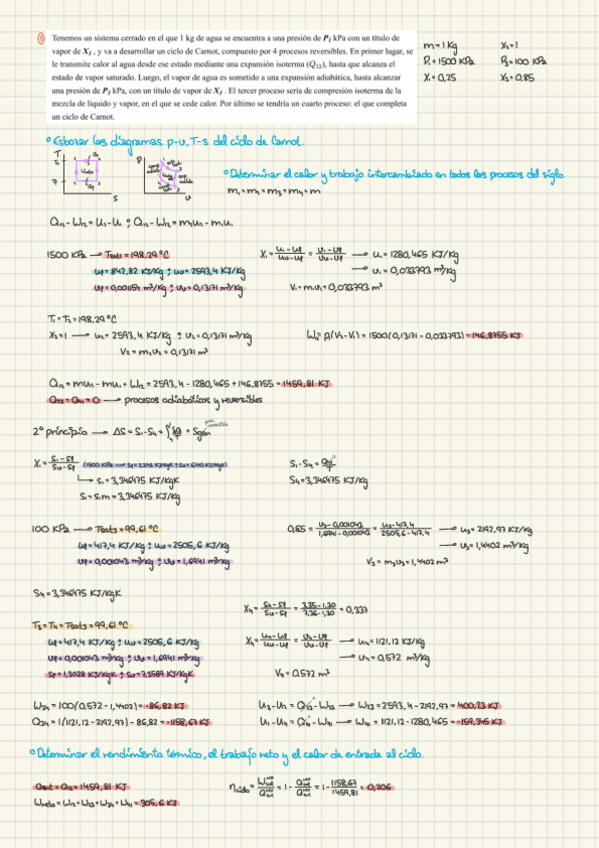 ① Tenemos un sistema cerrado en el que 1 kg de agua se encuentra a una presión de P₁ kPa con un título de
vapor de X₁ , y va a desarrollar un ciclo de Carnot, compuesto por 4 procesos reversibles. En primer lugar, se
le transmite calor al agua desde ese estado mediante una expansión isoterma (Q₁₂), hasta que alcanza el
estado de vapor saturado. Luego, el vapor de agua es sometido a una expansión adiabática, hasta alcanzar
una presión de P₃ kPa, con un título de vapor de X₃ . El tercer proceso sería de compresión isoterma de la
mezcla de líquido y vapor, en el que se cede calor. Por último se tendría un cuarto proceso: el que completa
un ciclo de Carnot.
m=1Kg X₂=1
P₁=1500 KPa P₃=100 KPa
X₁=0,25 X₃=0,85
° Esbozar los diagramas p-υ, T-s del ciclo de Carnot.
T P
S υ
° Determinar el calor y trabajo intercambiado en todos los procesos del ciclo.
m₁=m₂=m₃=m₄=m
Q₁₂-W₁₂=U₂-U₁ ; Q₁₂-W₁₂=m₂u₂-m₁u₁
1500 KPa → Tsat₁=198,29ºC
uf=842,82 KJ/Kg ; uv=2593,4 KJ/Kg
υf=0,001154 m³/Kg ; υv=0,13171 m³/Kg
X₁=(u₁-uf)/(uv-uf)=(υ₁-υf)/(υv-υf) → u₁=1280,465 KJ/Kg
→ υ₁=0,033793 m³/Kg
V₁=m₁υ₁=0,033793 m³
T₁=T₂=198,29ºC
X₂=1 → u₂=2593,4 KJ/Kg ; υ₂=0,13171 m³/Kg
V₂=m₂υ₂=0,13171 m³
W₁₂=P₁(V₂-V₁)=1500(0,13171-0,033793)=146,8755 KJ
Q₁₂=mu₂-mu₁+W₁₂=2593,4-1280,465+146,8755=1459,81 KJ
Q₂₃=Q₄₁=0 → procesos adiabáticos y reversibles
2º principio → ΔS=S₁-S₄=∫δQ/T + Sgen
X₁=(S₁-Sf)/(Sv-Sf)
S₁=3,346475 KJ/KgK
S₁=s₁m=3,346475 KJ/Kg
S₁-S₄=Q₄₁/T
S₄=3,346475 KJ/Kg
100 KPa → Tsat₃=99,61ºC
uf=417,4 KJ/Kg ; uv=2505,6 KJ/Kg
υf=0,001043 m³/Kg ; υv=1,6941 m³/Kg
0,85=(υ₃-0,001043)/(1,6941-0,001043)=(u₃-417,4)/(2505,6-417,4) → u₃=2192,97 KJ/Kg
→ υ₃=1,4402 m³/Kg
V₃=m₃υ₃=1,4402 m³
S₄=3,346475 KJ/KgK
T₃=T₄=Tsat₃=99,61ºC
uf=417,4 KJ/Kg ; uv=2505,6 KJ/Kg
υf=0,001043 m³/Kg ; υv=1,6941 m³/Kg
Sf=1,3028 KJ/KgK ; Sv=7,3589 KJ/KgK
X₄=(S₄-Sf)/(Sv-Sf)=(3,35-1,30)/(7,36-1,30)=0,337
X₄=(u₄-uf)/(uv-uf)=(υ₄-υf)/(υv-υf) → u₄=1121,12 KJ/Kg
→ υ₄=0,572 m³/Kg
V₄=0,572 m³
W₃₄=100(0,572-1,4402)=-86,82 KJ
Q₃₄=1(1121,12-2192,97)-86,82=-1158,67 KJ
U₃-U₂=Q₂₃-W₂₃ → W₂₃=2593,4-2192,97=400,23 KJ
U₁-U₄=Q₄₁-W₄₁ → W₄₁=1121,12-1280,465=-159,345 KJ
° Determinar el rendimiento térmico, el trabajo neto y el calor de entrada al ciclo.
Qent=Q₁₂=1459,81 KJ
Wneto=W₁₂+W₂₃+W₃₄+W₄₁=305,6 KJ
=1-1158,67/1459,81=0,206